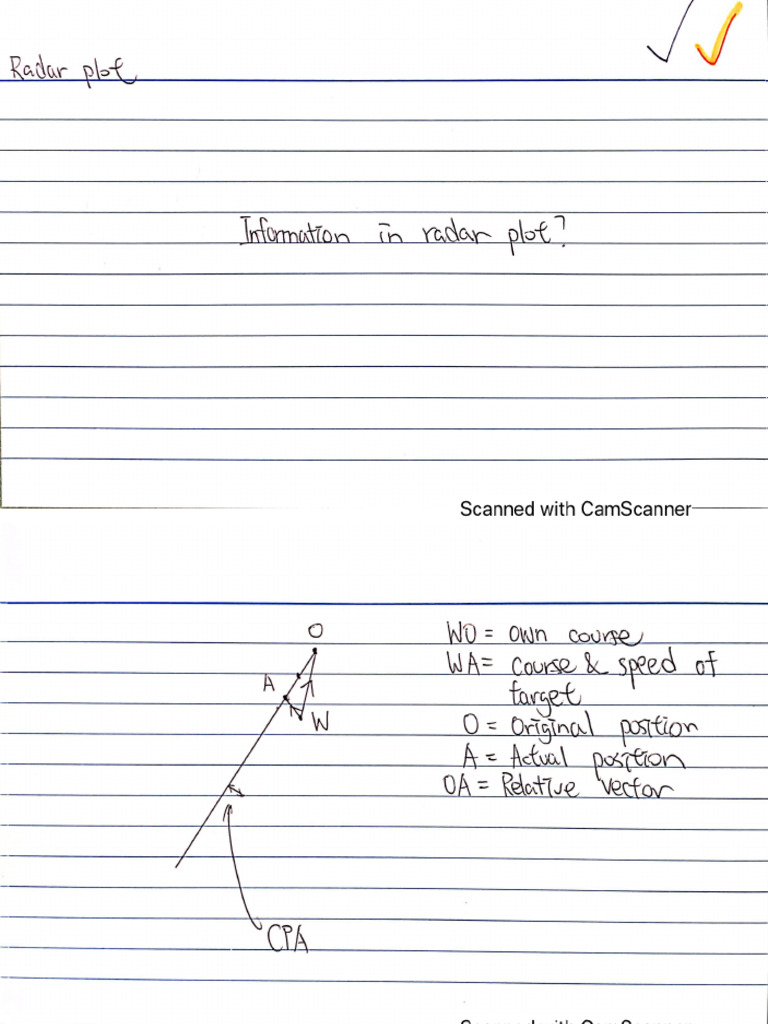 Radar plot
Information in radar plot?
Scanned with CamScanner
O
A
W
CPA
WO = own course
WA = course & speed of
target
O = Original position
A = Actual position
OA = Relative vector
Scanned with CamScanner